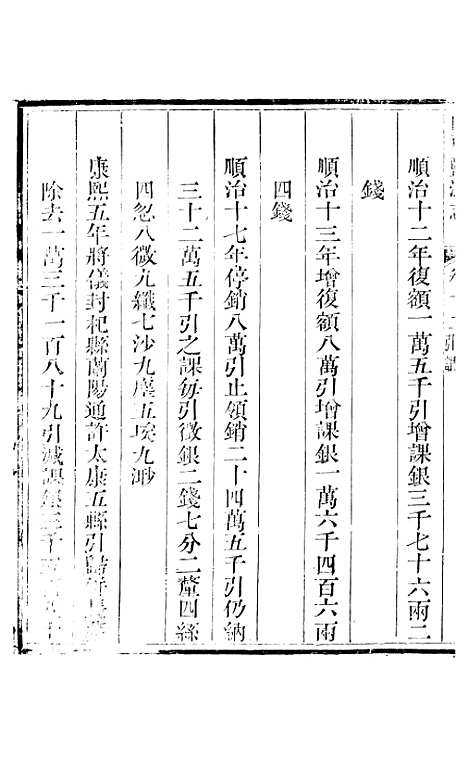 順治十二年復額一萬五千引增課銀三千七十六兩二
錢
順治十三年增復額八萬引增課銀一萬六千四百六兩
四錢
順治十七年停銷八萬引止領銷二十四萬五千引仍納
三十二萬五千引之課每引徵銀二錢七分二釐四絲
四忽八微九纖七沙九塵五埃九渺
康熙五年將儀封杞縣蘭陽通許太康五縣引
除去一萬三千一百八十九引減課銀三千